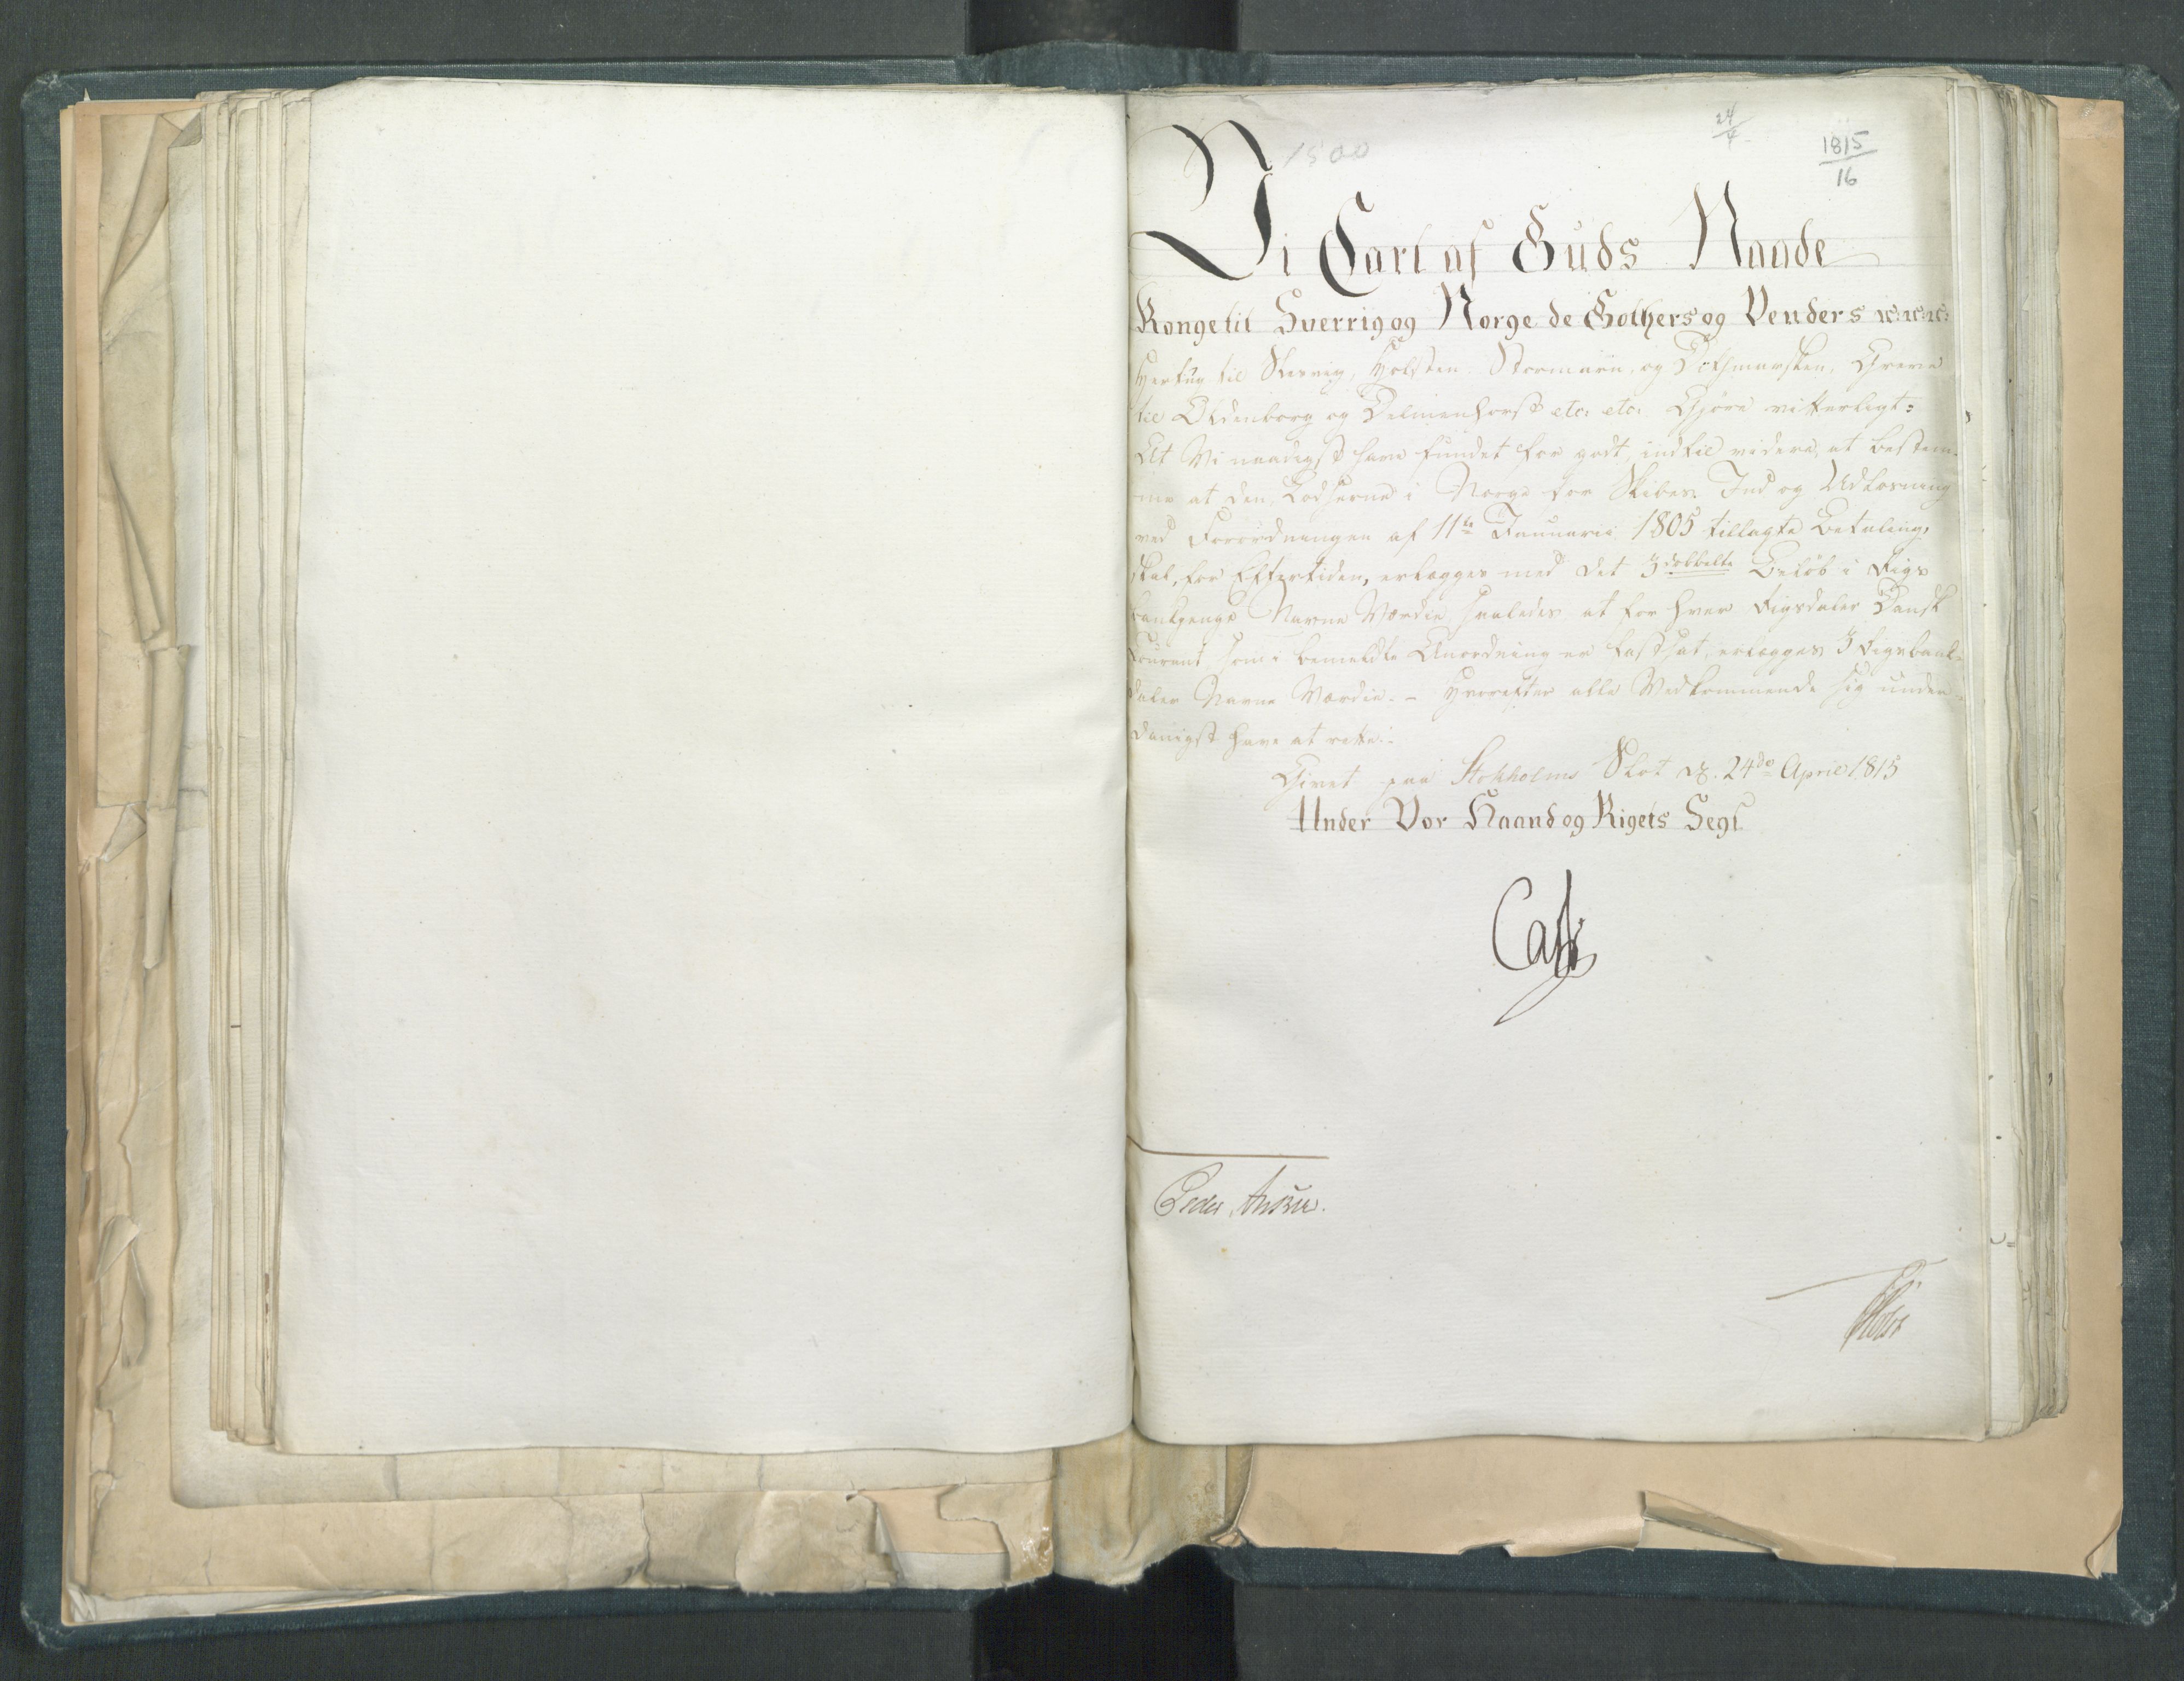 1800
24/4
1815/16
Vi Carl af Guds Naade
Konge til Sverrig og Norge de Gothers og Venders ꝛc: ꝛc: ꝛc:
Hertug til Slesvig, Holsten, Stormarn, og Dithmarsken, Greve
til Oldenborg og Delmenhorst etc: etc: Gjøre vitterligt:
At Vi naadigst have fundet for godt, indtil videre, at bestem-
me at den Lodserne i Norge for Skibes Ind og Udlosning
ved Forordningen af 11te Januarii 1805 tillagte Betaling,
skal, for Eftertiden, erlægges med det 3dobbelte Beløb i Rigs
bankpenge Navne Værdie, saaledes at for hver Rigsdaler Dansk
Courant, som i bemeldte Anordning er fastsat, erlægges 3 Rigsbank-
daler Navne Værdie. – Hvorefter alle Vedkommende sig under-
danigst have at rette.
Givet paa Stokholms Slot d. 24de April 1815
Under Vor Haand og Rigets Segl.
Carl
Peder Anker.
Holst